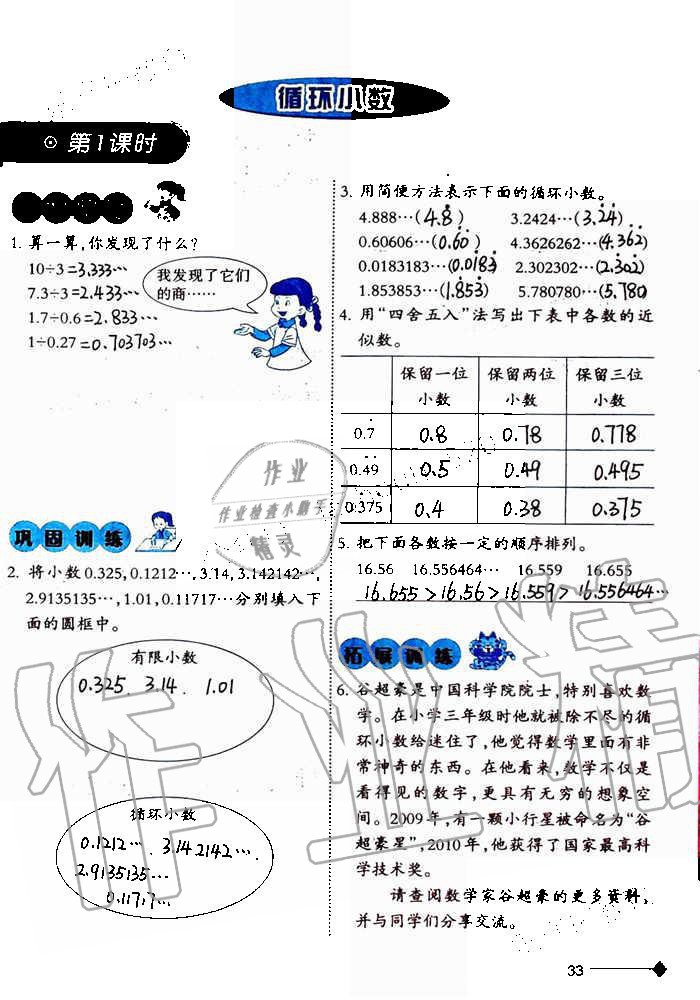 循环小数
第1课时
1. 算一算,你发现了什么?
10÷3=3.333···
7.3÷3=2.433···
1.7÷0.6=2.833···
1÷0.27=0.703703···
我发现了它们
的商……
巩固训练
2. 将小数0.325,0.1212···,3.14,3.142142···,
2.9135135···,1.01,0.11717···分别填入下
面的圆框中。
有限小数
0.325. 3.14. 1.01
循环小数
0.1212···. 3.142142···.
2.9135135···
0.11717···
3. 用简便方法表示下面的循环小数。
4.888···(4.8̇) 3.2424···(3.2̇4̇)
0.60606···(0.6̇0̇) 4.3626262···(4.36̇2̇)
0.0183183···(0.01̇83̇) 2.302302···(2.3̇02̇)
1.853853···(1.8̇53̇) 5.780780···(5.7̇80̇)
4. 用“四舍五入”法写出下表中各数的近
似数。
保留一位小数 保留两位小数 保留三位小数
0.7̇ 0.8 0.78 0.778
0.4̇9̇ 0.5 0.49 0.495
0.3̇75̇ 0.4 0.38 0.375
5. 把下面各数按一定的顺序排列。
16.56 16.556464··· 16.559 16.655
16.655>16.56>16.559>16.556464···
拓展训练
6. 谷超豪是中国科学院院士,特别喜欢数
学。在小学三年级时他就被除不尽的循
环小数给迷住了,他觉得数学里面有非
常神奇的东西。在他看来,数学不仅是
看得见的数字,更具有无穷的想象空
间。2009年,有一颗小行星被命名为“谷
超豪星”,2010年,他获得了国家最高科
学技术奖。
请查阅数学家谷超豪的更多资料,
并与同学们分享交流。
作业
作业检查小助手
精灵
作业精
33